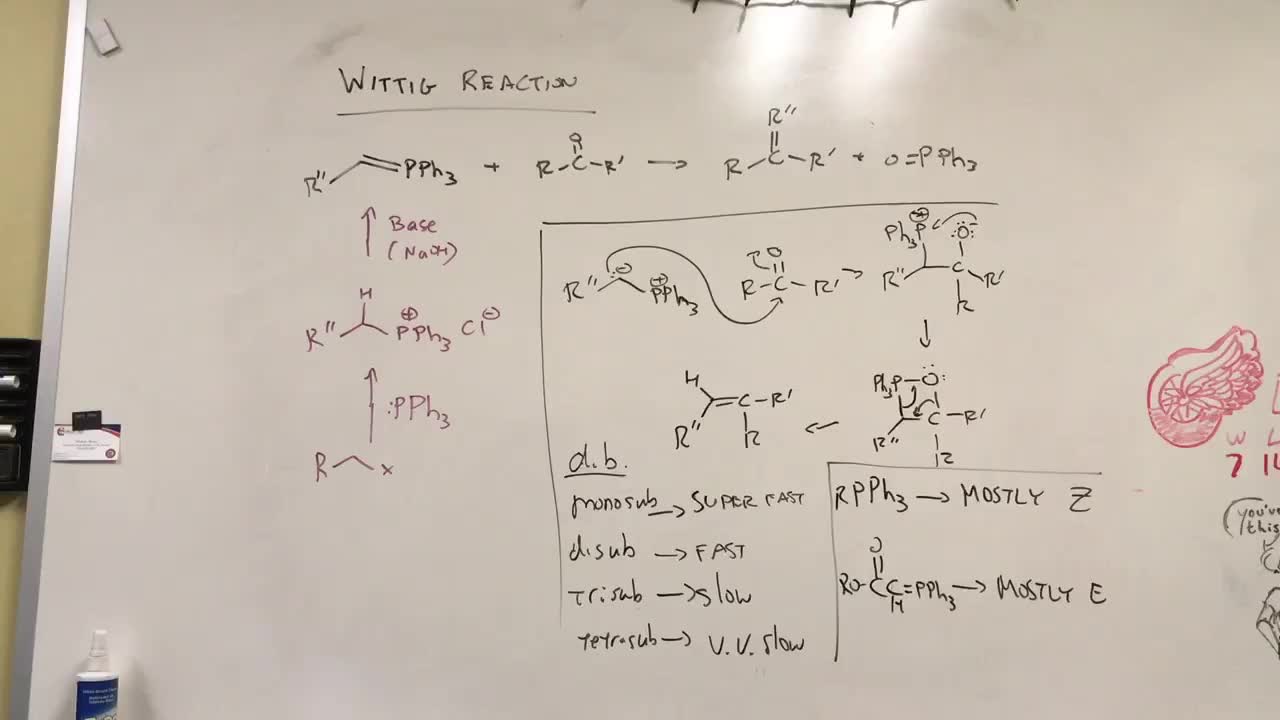 WITTIG REACTION
R" PPh3 + R-C-R' → R-C-R' + O=PPh3
O
R"
Base
(NaOH)
H
R" ⊕PPh3 Cl⊖
:PPh3
R x
R" ⊖ ⊕PPh3 R-C-R' O →
Ph3P⊕ :Ö:⊖
R" C R'
R
↓
Ph3P-Ö:
R" C-R'
R
←
H
R" =C-R'
R
d.b.
monosub → SUPER FAST
disub → FAST
Trisub → slow
Tetrasub → V.V. slow
RPPh3 → MOSTLY Z
O
RO-C-C=PPh3 → MOSTLY E
H
W L
7 14
(you've
this